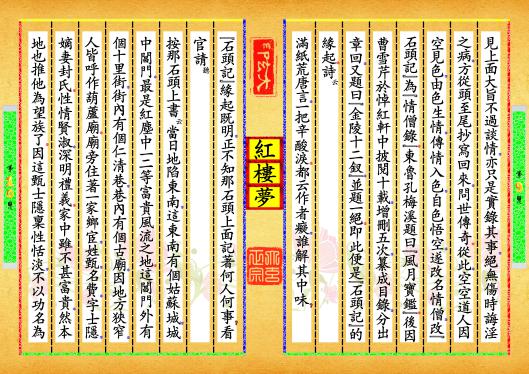 見上面大旨不過談情亦只是實錄其事絕無傷時誨淫
之病方從頭至尾抄寫回來問世傳奇從此空空道人因
空見色由色生情傳情入色自色悟空遂改名情僧改
石頭記為情僧錄東魯孔梅溪題曰風月寶鑑後因
曹雪芹於悼紅軒中披閱十載增刪五次纂成目錄分出
章回又題曰金陵十二釵並題一絕即此便是石頭記的
緣起詩云
滿紙荒唐言一把辛酸淚都云作者癡誰解其中味
紅樓夢
石頭記緣起既明正不知那石頭上面記著何人何事看
官請聽
按那石頭上書云當日地陷東南這東南有個姑蘇城城
中閶門最是紅塵中一二等富貴風流之地這閶門外有
個十里街街內有個仁清巷巷內有個古廟因地方狹窄
人皆呼作葫蘆廟廟旁住著一家鄉宦姓甄名費字士隱
嫡妻封氏性情賢淑深明禮義家中雖不甚富貴然本
地也推他為望族了因這甄士隱稟性恬淡不以功名為